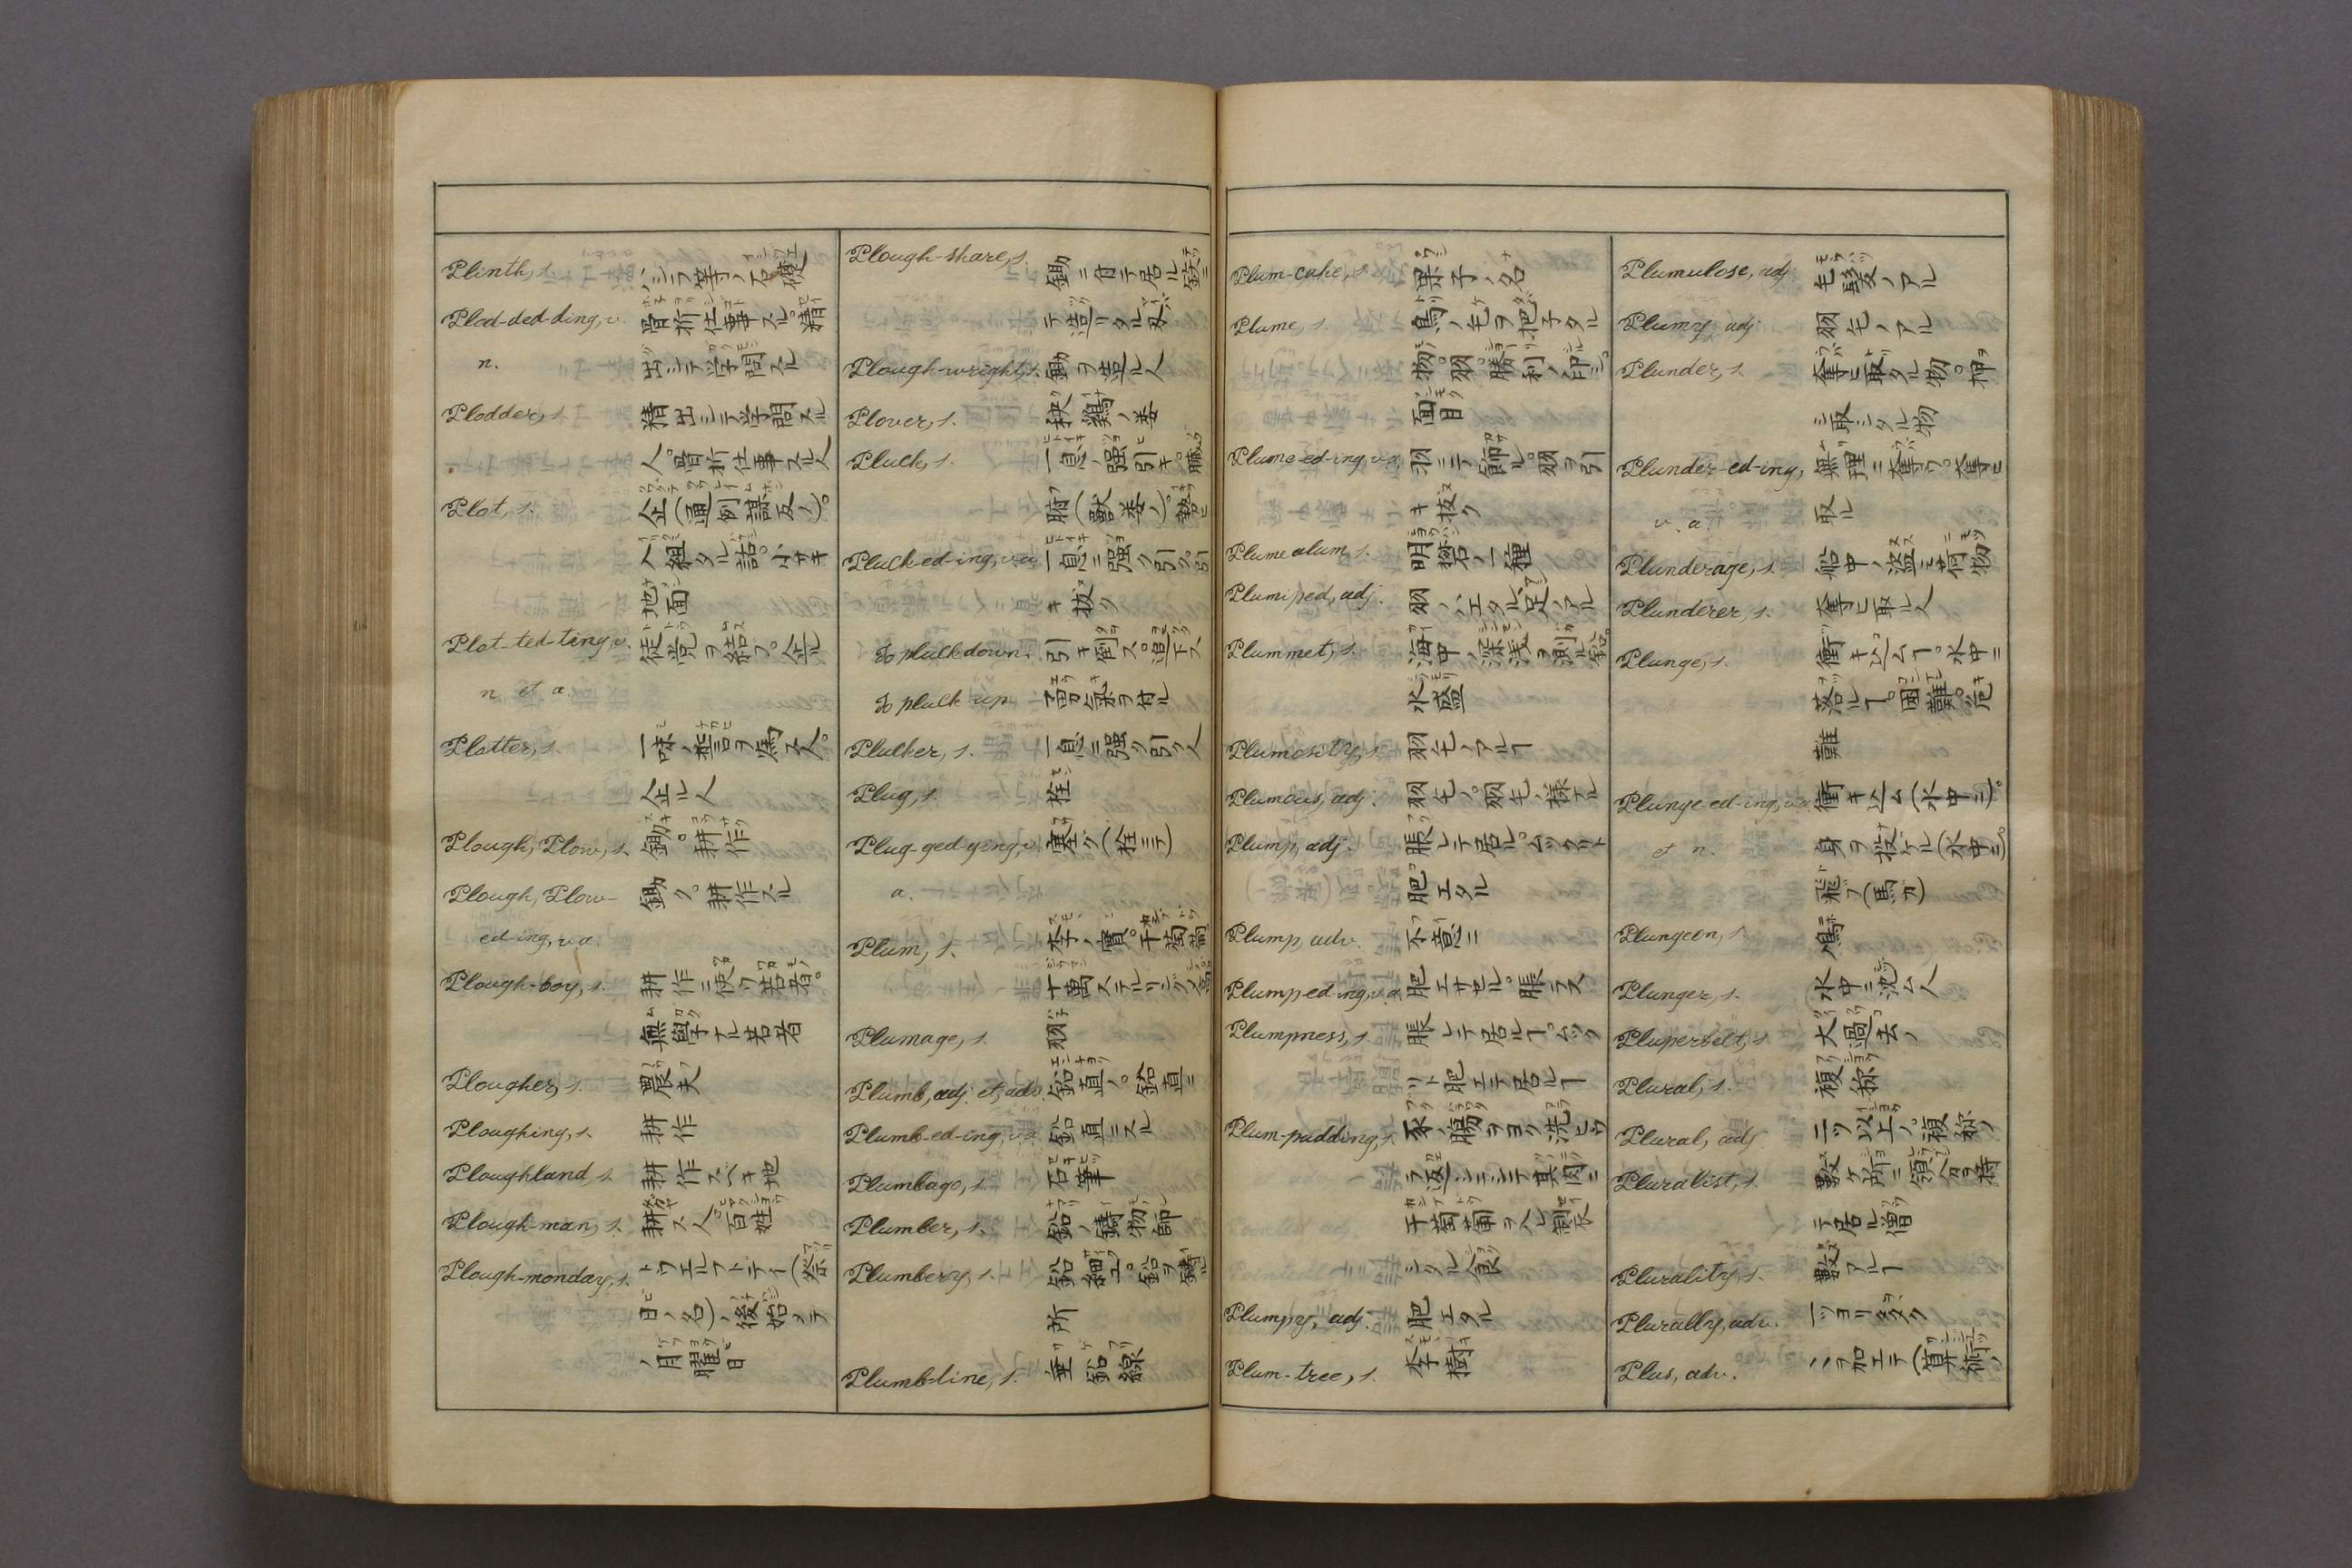 Plinth, s.
Plod-ded-ding, v. 骨折仕事スル。精
n. 出シテ学問スル
Plodder, s. 精出シテ学問スル
人。骨折仕事スル人
Plot, s. 企(通例謀反ノ)。
小サキ
地面
Plot-ted-ting, v. 徒党ヲ結フ。企ル
n. et a.
Plotter, s.
企ル人
Plough, Plow, s. 鋤。耕作
Plough, Plow- 鋤ク。耕作スル
ed-ing, v.a.
Plough-boy, s. 耕作ニ使ウ若者。
無學ナル若者
Plougher, s. 農夫
Ploughing, s. 耕作
Ploughland, s. 耕作スベキ地
Plough-man, s. 耕ス人。百姓
Plough-monday, s. トウエルフトデイ(祭
日ノ名)ノ後始メテ
ノ月曜日
Plough-share, s.
Plough-wright, s. 鋤ヲ造ル人
Plover, s. 秧鶏ノ類
Pluck, s. 一息ノ強引キ。臓
腑(獣類ノ)。
Pluck-ed-ing, v.a. 一息ニ強ク引ク。引
キ抜ク
To pluck down. 引キ倒ス。
To pluck up 勇氣ヲ付ル
Plucker, s. 一息ニ強ク引ク人
Plug, s. 栓
Plug-ged-ging, v. 塞グ(栓ニテ)
a.
Plum, s. 李ノ實。干葡萄
Plumage, s. 羽
Plumb, adj. et, adv. 鉛直ノ。鉛直ニ
Plumb-ed-ing, v.a. 鉛直ニスル
Plumbago, s. 石筆
Plumber, s. 鉛ノ鑄物師
Plumbery, s. 鉛細工。鉛ヲ鑄ル
所
Plumb-line, s. 垂鉛線
Plum-cake, s. 菓子ノ名
Plume, s. 鳥ノ毛ヲ把子タル
物。羽。勝利ノ印シ。
面目
Plume-ed-ing, v.a. 羽ニテ餝ル。羽ヲ引
キ抜ク
Plume alum, s. 明礬ノ一種
Plumiped, adj. 羽ノハエタル足ノアル
Plummet, s. 海中ノ深浅ヲ測ル鉛。
水盛
Plumosity, s. 羽毛ノアルヿ
Plumous, adj. 羽毛ノ。羽毛ノ様ナル
Plump, adj. 脹レテ居ル。ムックリト
肥エタル
Plump, adv. 不意ニ
Plump-ed-ing, v.a. 肥エサセル。脹ラス
Plumpness, s. 脹レテ居ルヿ。ムック
リト肥エテ居ルヿ
Plum-pudding, s. 豕ノ腸ヲヨク洗ヒウ
干葡萄ヲ入レ製
シタル食
Plumpy, adj. 肥エタル
Plum-tree, s. 李樹
Plumulose, adj. 毛髪ノアル
Plumy, adj. 羽毛ノアル
Plunder, s. 奪ヒ取タル物。押
シ取シタル物
Plunder-ed-ing, 無理ニ奪ウ。奪ヒ
v. a. 取ル
Plunderage, s. 船中ノ盗ミ荷物
Plunderer, s. 奪ヒ取ル人
Plunge, s. 衝キ込ムヿ。水中ニ
落ルヿ。困難。危
難
Plunge-ed-ing, v.a. 衝キ込ム(水中ニ)。
et n. 身ヲ投ゲル(水中ニ)。
飛ブ(馬ガ)
Plungeon, s.
Plunger, s. 水中ニ沈ム人
Pluperfect, s. 大過去ノ
Plural, s. 複称
Plural, adj. 二ツ以上ノ。複称ノ
Pluralist, s. 數ケ所ニ領分ヲ持
テ居ル僧
Plurality, s. 數アルヿ
Plurally, adv. 一ツヨリ多ク
Plus, adv. ヲ加エテ(算術ノ